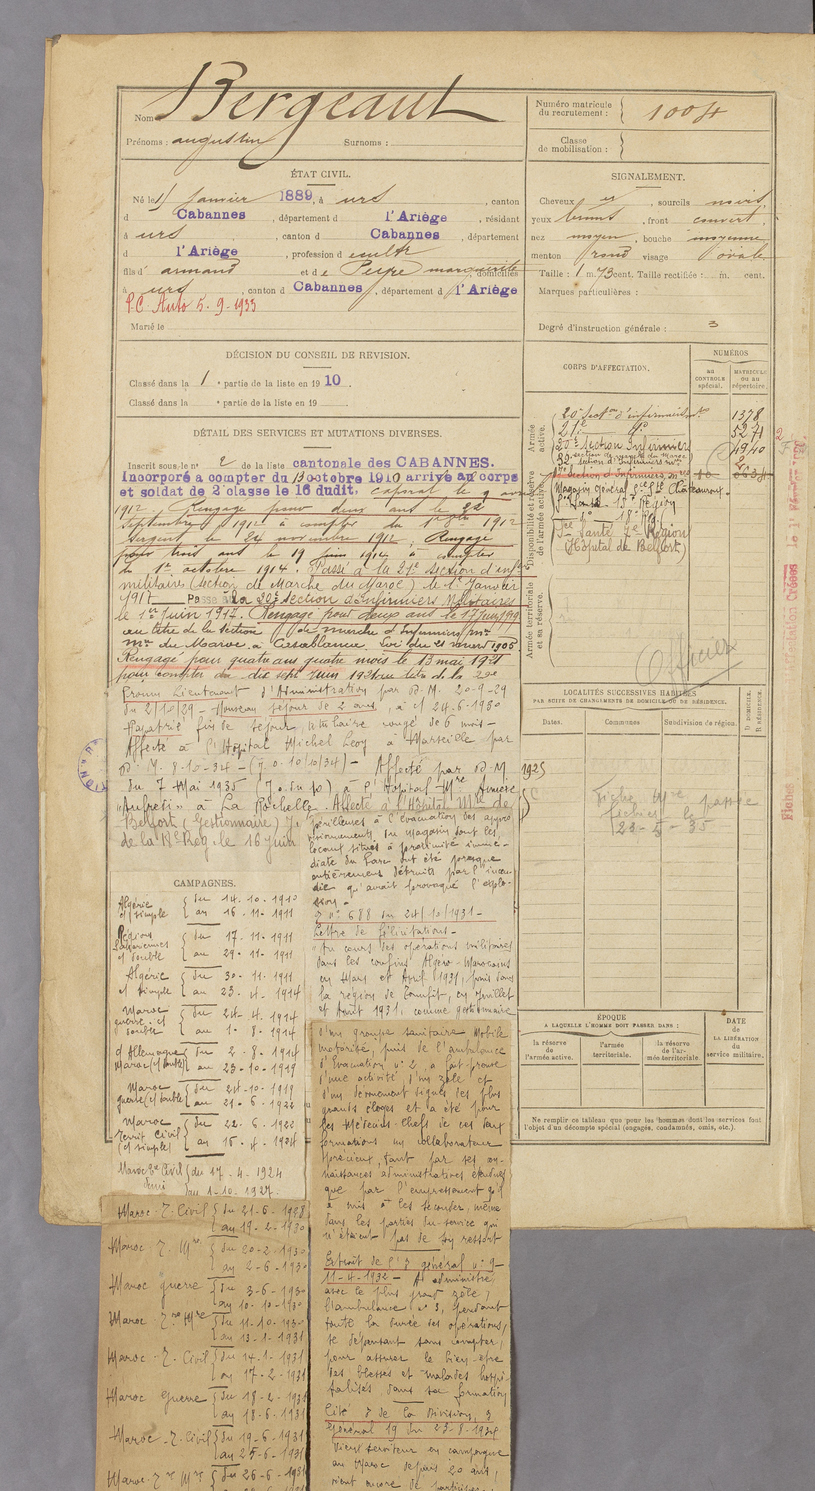 Nom Bergeaut
Prénoms : augustin Surnoms :
Numéro matricule
du recrutement : 1004
Classe
de mobilisation :
ÉTAT CIVIL.
Né le janvier 1889, à urs, canton
d Cabannes, département d l'Ariège, résidant
à urs, canton d Cabannes, département
d l'Ariège, profession d
fils d' armand et de marguerite, domiciliés
à urs, canton d Cabannes, département d l'Ariège
P.C Auto 5.9.1933
Marié le
SIGNALEMENT.
Cheveux et, sourcils noirs,
yeux bruns, front couvert,
nez moyen, bouche moyenne
menton rond visage ovale
Taille : 1 m. 73 cent. Taille rectifiée : m. cent.
Marques particulières :
Degré d'instruction générale : 3
DÉCISION DU CONSEIL DE REVISION.
Classé dans la 1e partie de la liste en 1910.
Classé dans la e partie de la liste en 19
DÉTAIL DES SERVICES ET MUTATIONS DIVERSES.
Inscrit sous le n° 2 de la liste cantonale des CABANNES.
Incorporé a compter du 13 octobre 1910 arrivé au corps
et soldat de 2e classe le 16 dudit. caporal le 9
1912. Rengagé pour deux ans le 22
Septembre 1912 à compter du 1912
Sergent le 24 novembre 1912. Rengagé
pour trois ans le 19 juin 1914 à compter
du 1er octobre 1914. Passé à la 21e Section d'inf
militaires (section de Marche du Maroc) le 1er Janvier
1917 Passé à la 20e Section d'infirmiers Militaires
le 1er juin 1917. Rengagé pour deux ans le 17 juin
au titre de la section de marche d'Infirmiers
du Maroc à Casablanca. Loi du 21 mars 1905.
Rengagé pour quatre ans quatre mois le 13 mai 1921
pour compter du dix sept juin 1921 au titre de la 22e
Promu Lieutenant d'Administration par D. M. 20-9-29
du 2/10/29 - Nouveau séjour de 2 ans, à c/ 24-6-1930
Rapatrié fin de séjour, titulaire congé de 6 mois -
Affecté à l'Hôpital Michel Levy à Marseille par
D. M. 8-10-34 - (J.O. 10/10/34) - Affecté par D. M.
du 7 Mai 1935 (J.O. du 10) à l'Hôpital Mre Annexe
"Aufrédi" à La Rochelle. Affecté à l'Hôpital Mre de
Belfort (Gestionnaire)
de la Rég. le 16 Juin
CORPS D'AFFECTATION.
NUMÉROS
AU CONTRÔLE spécial.
MATRICULE OU AU répertoire.
Armée active.
Disponibilité et réserve de l'armée active.
Armée territoriale et sa réserve.
20e Section d'infirmiers 1378
21e d° 5271
20e Section Infirmiers 1940
Magasin Général Sce Sté Châteauroux
Sce Santé 15e Région
d° 18e Rég
Sce Santé 7e Région
(Hôpital de Belfort)
Officier
LOCALITÉS SUCCESSIVES HABITÉES
PAR SUITE DE CHANGEMENTS DE DOMICILE OU DE RÉSIDENCE.
Dates. Communes Subdivision de région. D. DOMICILE. R. RÉSIDENCE.
1925
Fiche Mre passée
23-5-35
ÉPOQUE
A LAQUELLE L'HOMME DOIT PASSER DANS :
la réserve de l'armée active.
l'armée territoriale.
la réserve de l'armée territoriale.
DATE
de
LA LIBÉRATION
du
service militaire.
Ne remplir ce tableau que pour les hommes dont les services font
l'objet d'un décompte spécial (engagés, condamnés, omis, etc.).
CAMPAGNES.
Algérie c/ simple du 14-10-1910 au 16-11-1911
Régions Sahariennes c/ double du 17-11-1911 au 29-11-1911
Algérie c/ simple du 30-11-1911 au 23-4-1914
Maroc guerre c/ double du 24-4-1914 au 1-8-1914
c/ Allemagne Maroc (c/ double) du 2-8-1914 au 23-10-1919
Maroc guerre (c/ double) du 24-10-1919 au 21-6-1922
Maroc Territ Civil (c/ simple) du 22-6-1922 au 15-4-1924
Maroc Z. Civil demi du 17-4-1924 au 1-10-1927
Maroc Z. Civil du 21-6-1928 au 19-2-1930
Maroc Z. Mre du 20-2-1930 au 2-6-1930
Maroc guerre du 3-6-1930 au 10-10-1930
Maroc Z. Mre du 11-10-1930 au 13-1-1931
Maroc Z. Civil du 14-1-1931 au 17-2-1931
Maroc Guerre du 18-2-1931 au 18-6-1931
Maroc Z. Civil du 19-6-1931 au 25-6-1931
Maroc Z. Mre du 26-6-1931
périlleuses à l'évacuation des appro
visionnements du Magasin dont les
locaux situés à proximité immé-
diate du Parc ont été presque
entièrement détruits par l'incen-
die qu'avait provoqué l'explo-
sion -
O n° 688 du 24/10/1931 -
Lettre de félicitations -
"Au cours des opérations militaires
dans les confins Algéro-Marocains
en Mars et Avril 1931, puis dans
la région de Tounfit, en Juillet
et Août 1931, comme gestionnaire
d'un groupe sanitaire Mobile
motorisé, puis de l'ambulance
d'Evacuation n° 2, a fait preuve
d'une activité, d'un zèle et
d'un dévouement dignes des plus
grands éloges et a été pour
les Médecins-Chefs de ces deux
formations un collaborateur
précieux, tant par ses con-
naissances administratives étendues
que par l'empressement qu'il
a mis à les seconder, même
dans les parties du service qui
n'étaient pas de son ressort
Extrait de l'O général n° 9
11-4-1932 - A administré
avec le plus grand zèle,
l'ambulance n° 3, pendant
toute la durée des opérations,
se dépensant sans compter,
pour assurer le bien-être
des blessés et malades hospi-
talisés, dans sa formation
Cité O de la Division, O
Général 19 du 23-8-1934
Vieux serviteur en campagne
au Maroc depuis 20 ans,
vient encore de participer